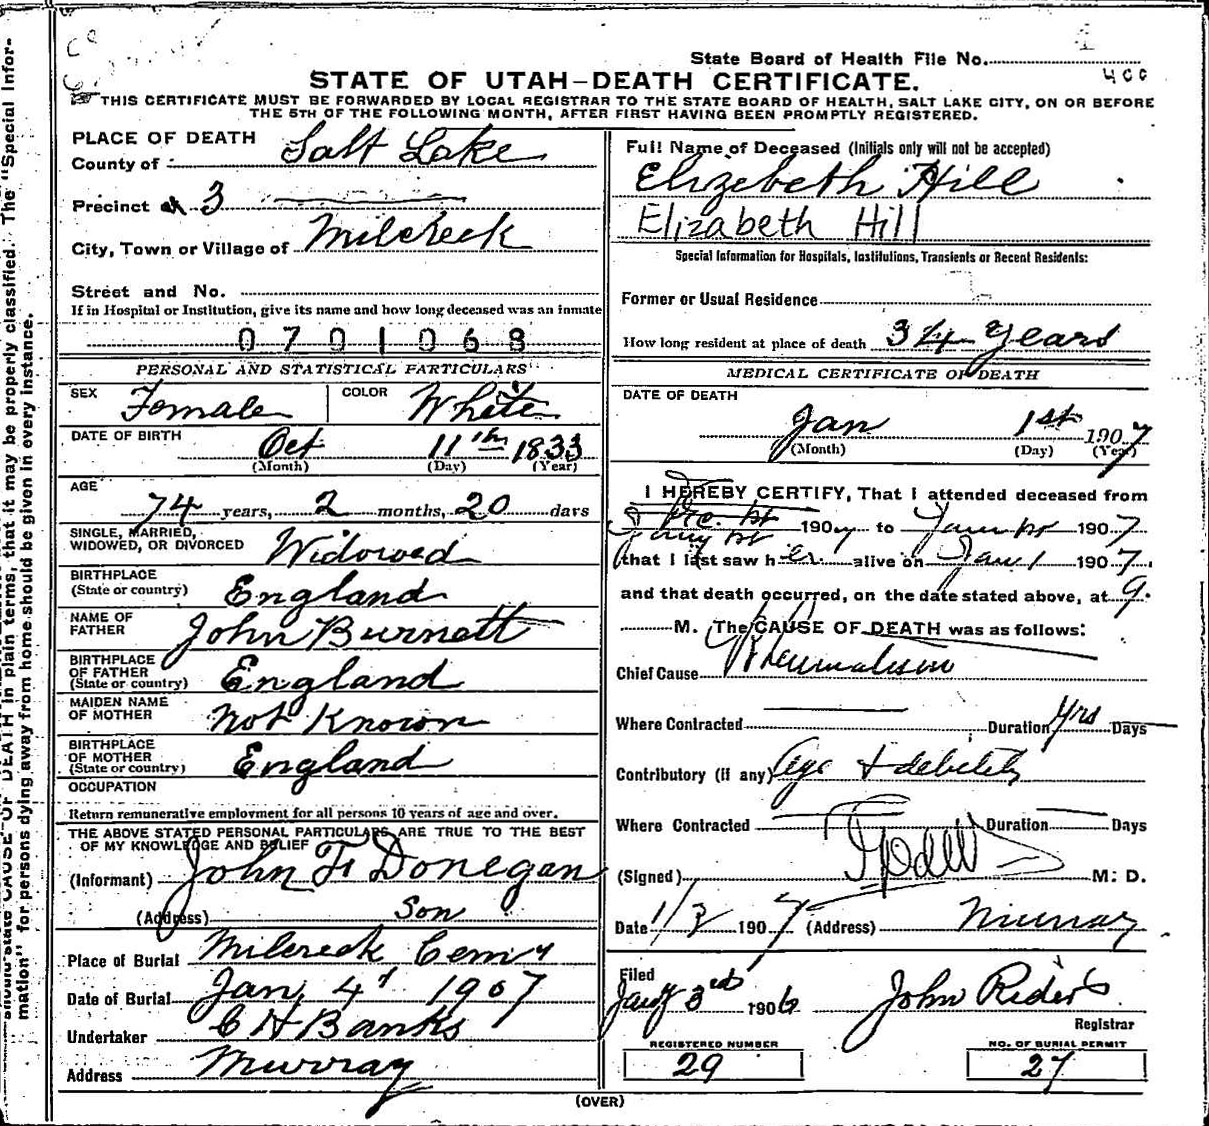 State Board of Health File No.
400
STATE OF UTAH—DEATH CERTIFICATE.
THIS CERTIFICATE MUST BE FORWARDED BY LOCAL REGISTRAR TO THE STATE BOARD OF HEALTH, SALT LAKE CITY, ON OR BEFORE
THE 5TH OF THE FOLLOWING MONTH, AFTER FIRST HAVING BEEN PROMPTLY REGISTERED.
PLACE OF DEATH
County of Salt Lake
Precinct 3
City, Town or Village of Milcreek
Street and No.
If in Hospital or Institution, give its name and how long deceased was an inmate
0701068
PERSONAL AND STATISTICAL PARTICULARS
SEX Female COLOR White
DATE OF BIRTH Oct 11th 1833
(Month) (Day) (Year)
AGE
74 years, 2 months, 20 days
SINGLE, MARRIED,
WIDOWED, OR DIVORCED Widowed
BIRTHPLACE
(State or country) England
NAME OF
FATHER John Burnett
BIRTHPLACE
OF FATHER
(State or country) England
MAIDEN NAME
OF MOTHER Not Known
BIRTHPLACE
OF MOTHER
(State or country) England
OCCUPATION
Return remunerative employment for all persons 10 years of age and over.
THE ABOVE STATED PERSONAL PARTICULARS ARE TRUE TO THE BEST
OF MY KNOWLEDGE AND BELIEF
(Informant) John F Donegan
(Address) Son
Place of Burial Milcreek Cemy
Date of Burial Jan, 4th 1907
Undertaker C H Banks
Address Murray
Full Name of Deceased (Initials only will not be accepted)
Elizebeth Hill
Elizabeth Hill
Special Information for Hospitals, Institutions, Transients or Recent Residents:
Former or Usual Residence
How long resident at place of death 34 years
MEDICAL CERTIFICATE OF DEATH
DATE OF DEATH
Jan 1st 1907
(Month) (Day) (Year)
I HEREBY CERTIFY, That I attended deceased from
190 to 1907
that I last saw her alive on Jan 1 1907,
and that death occurred, on the date stated above, at 9.
M. The CAUSE OF DEATH was as follows:
Chief Cause Rheumatism
Where Contracted Duration yrs Days
Contributory (if any) Age & debility
Where Contracted Duration Days
(Signed) M. D.
Date 1/3 1907 (Address) Murray
Filed
3rd 1906 John Riders
Registrar
REGISTERED NUMBER
29
NO. OF BURIAL PERMIT
27
(OVER)
CAUSE OF DEATH in plain terms, that it may be properly classified. The "Special Infor-
mation" for persons dying away from home should be given in every instance.